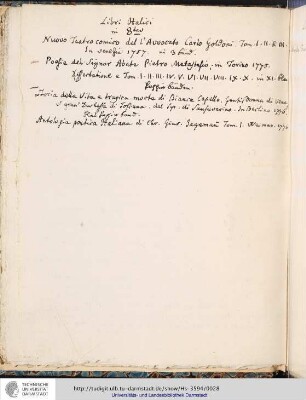 Libri Italici
in 8tavo
Nuovo Teatro comico dell'Avvocato Carlo Goldoni Tom. I. II. III.
In Venezia 1757. in 3
Poesie del Signor Abate Pietro Metastasio. in Torino 1775.
Dissertatione e Tom. I. II. III. IV. V. VI. VII. VIII. IX. X. in XI.
Istoria della Vita e tragica morte di Bianca Capello, Gentildonna di
e gran Duchessa di Toscana. del Sgr. di Sanseverino. In Berlino 1776.
Antologia poetica Italiana di Chr. Gius. Jagemann Tom. I. Weimar. 1776
TECHNISCHE
UNIVERSITÄT
DARMSTADT
http://tudigit.ulb.tu-darmstadt.de/show/Hs-3594/0028
Universitäts- und Landesbibliothek Darmstadt